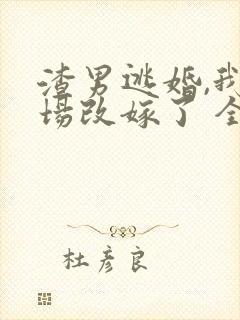 渣男逃婚,我
场改嫁了全
杜彦良